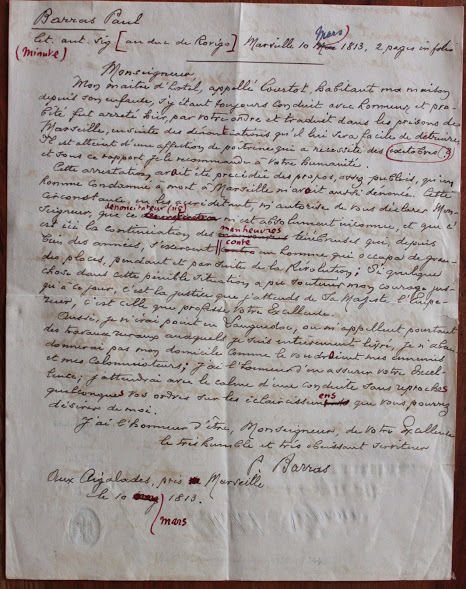 Barras Paul
Let. aut. sig [au duc de Rovigo] Marseille 10 Mars 1813, 2 pages in folio
(minute)
Monseigneur
Mon maitre d'hotel, appellé Courtot, habitant ma maison
depuis son enfance, s'y étant toujours conduit avec honneur et pro-
bité fut arreté hier, par votre ordre et traduit dans les prisons de
Marseille, ensuite des dénontiations qu'il lui sera facile de détruire,
Il est atteint d'une affection de poitrine qui a necessité des (?)
et sous ce rapport je le recommande à Votre humanité.
Cette arrestation, avoit été précédée des propos, assez publics, qu'un
homme Condamné a mort à Marseille m'avoit aussi dénoncé. Cette
circonstance, m'autorise de vous déclarer Mon-
seigneur, que ce dénonciateur (sic) m'est absolument inconnu, et que c'
est ici la continuation des manœuvres ténébreuses que, depuis
bien des années, s'exercent contre un homme qui occupa de gran-
des places, pendant et par suite de la Révolution; Si quelque
chose dans cette pénible situation a pu soutenir mon courage jus-
qu'à ce jour, c'est la justice que j'attends de Sa Majesté l'Empe-
reur, c'est celle que professe Votre Excellence.
Aussi, je n'irai point en Languedoc, ou m'appellent pourtant
des travaux ruraux auxquels je suis entièrement livré, je n'aban-
donnerai pas mon domicile comme le voudroient mes ennemis
et mes Calomniateurs; j'ai l'honneur d'en assurer votre Excel-
lence; j'attendrai avec le calme d'une conduite sans reproches
quelconques vos ordres sur les éclaircissemens que vous pourrez
désirer de moi.
J'ai l'honneur d'être, Monseigneur, de Votre Excellence
le très humble et très obeissant serviteur
P. Barras
Aux Aigalades, près Marseille
le 10 mars 1813.